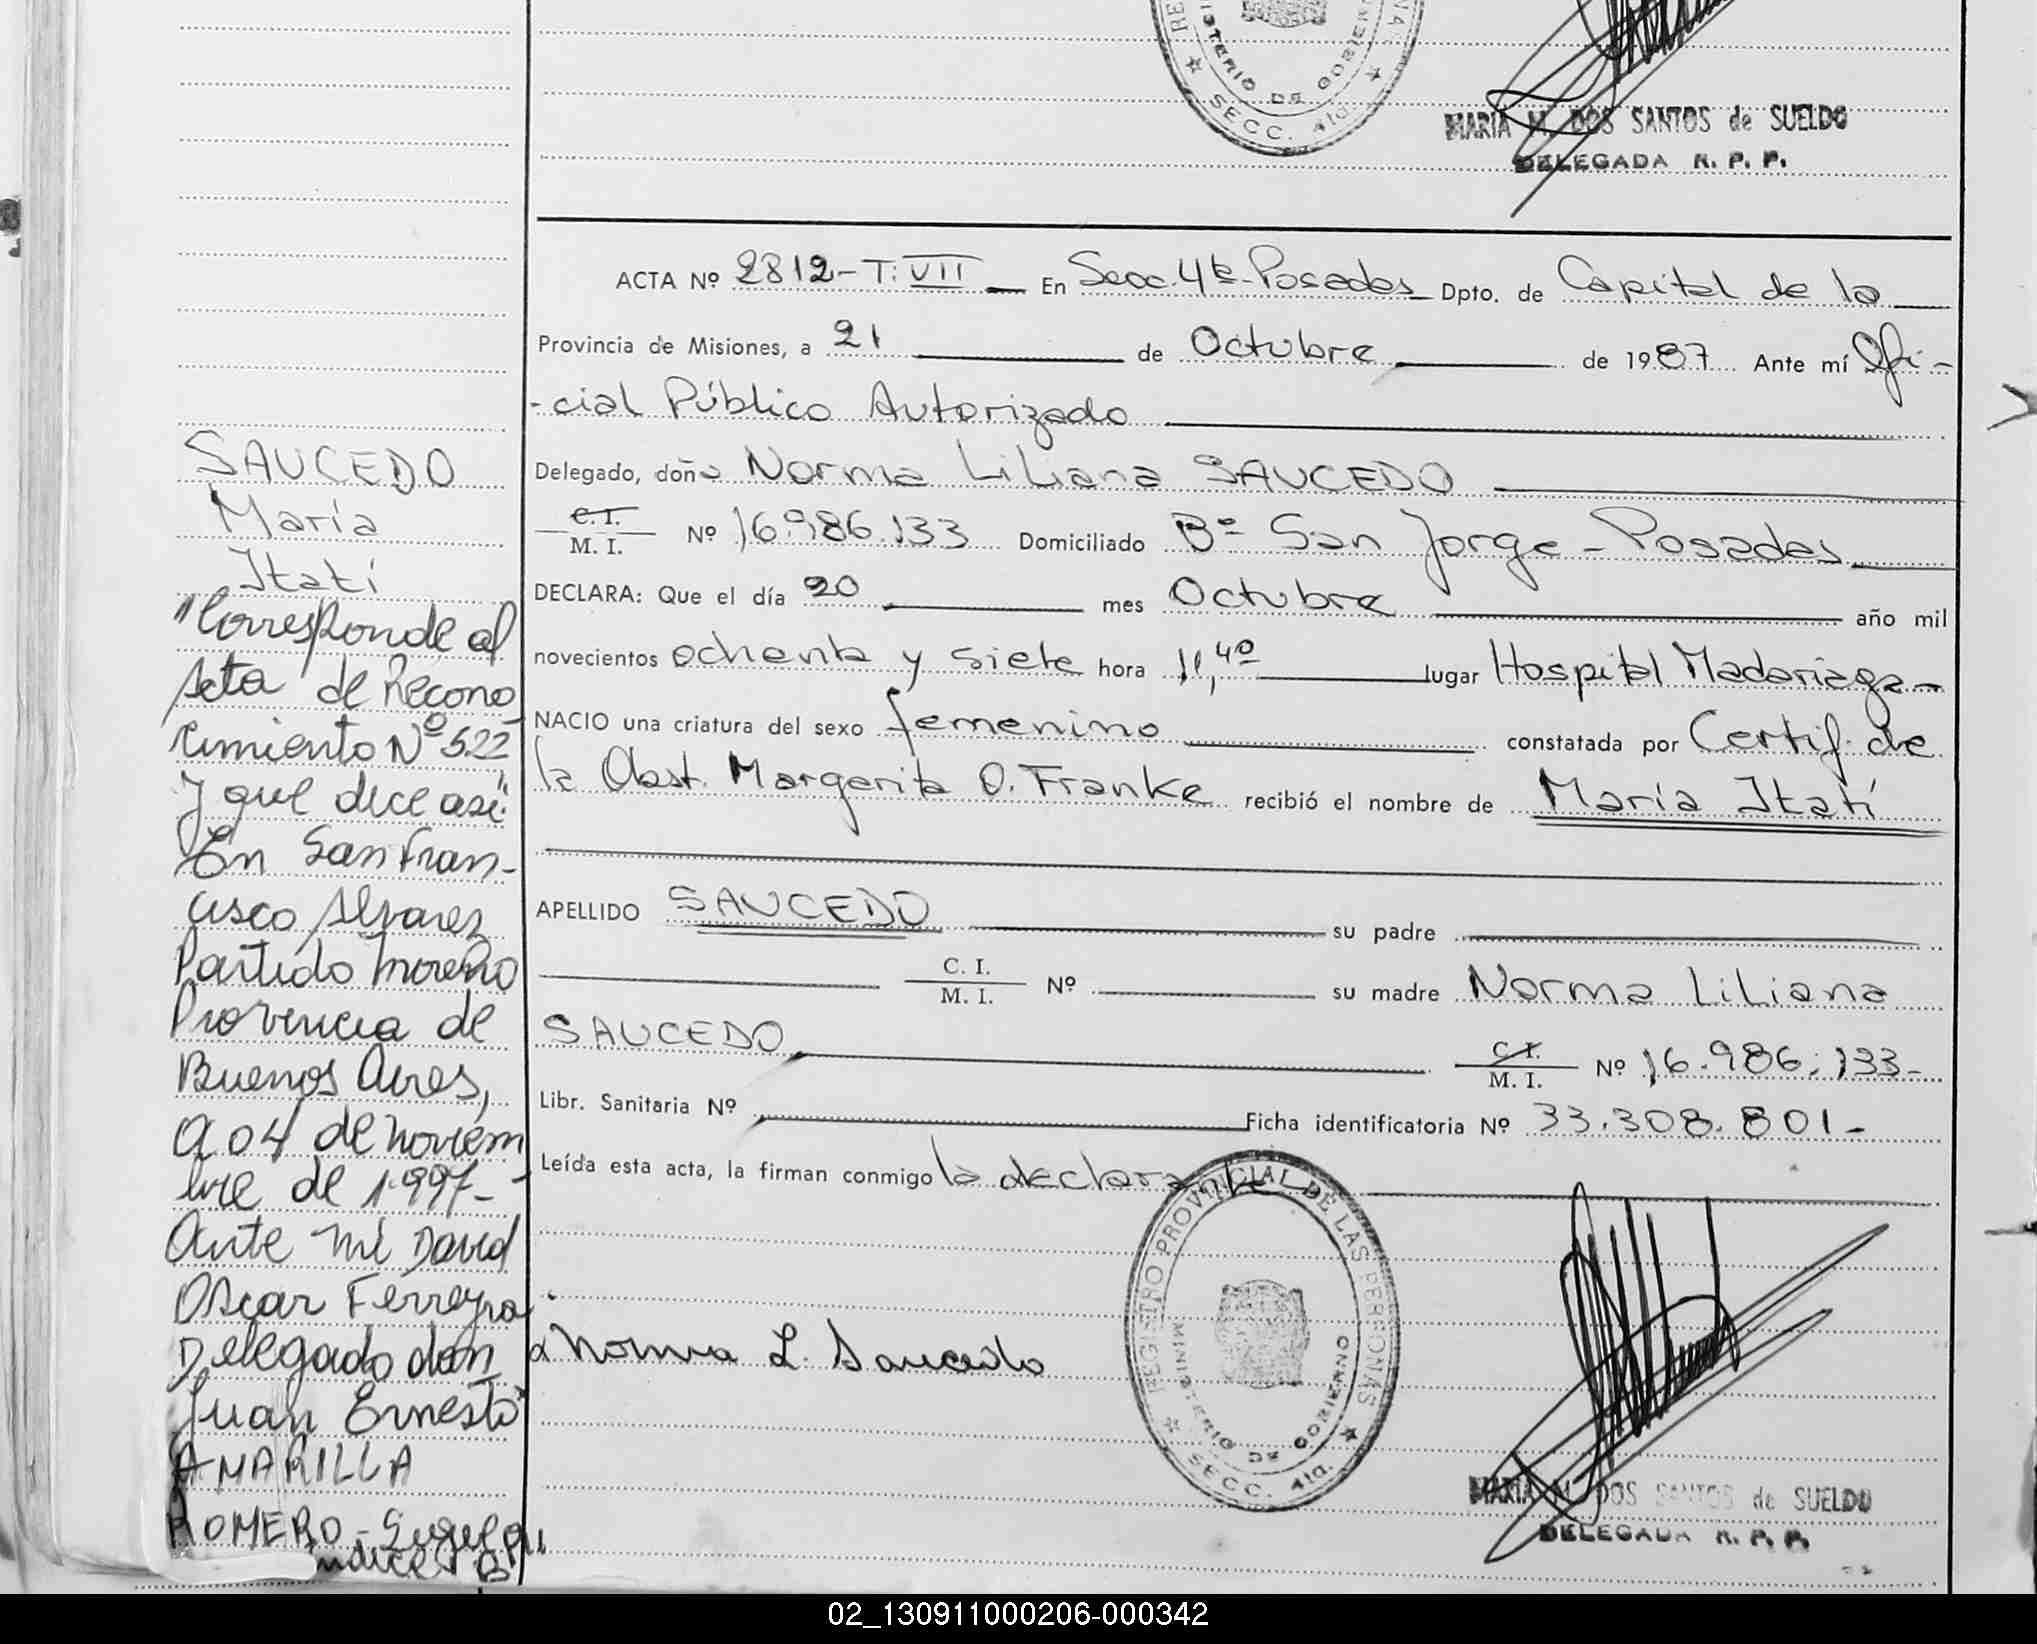 REG
NAS
MINISTERIO DE GOBIERNO
SECC. 4ta.
MARIA M. DOS SANTOS de SUELDO
DELEGADA R. P. P.
ACTA Nº 2812-T: VII En Secc. 4ta-Posadas Dpto. de Capital de la
Provincia de Misiones, a 21 de Octubre de 1987 Ante mí Ofi-
-cial Público Autorizado
Delegado, doña Norma Liliana SAUCEDO
C. I.
M. I. Nº 16.986.133 Domiciliado Bº San Jorge - Posadas
DECLARA: Que el día 20 mes Octubre año mil
novecientos ochenta y siete hora 11,40 lugar Hospital Madariaga-
NACIO una criatura del sexo femenino constatada por Certif. de
la Obst. Margarita O. Franke recibió el nombre de María Itatí
APELLIDO SAUCEDO su padre
C. I.
M. I. Nº su madre Norma Liliana
SAUCEDO C. I.
M. I. Nº 16.986.133-
Libr. Sanitaria Nº Ficha identificatoria Nº 33.308.801-
Leída esta acta, la firman conmigo la declarante
Norma L. Saucedo
REGISTRO PROVINCIAL DE LAS PERSONAS
MINISTERIO DE GOBIERNO
SECC. 4ta.
MARIA M. DOS SANTOS de SUELDO
DELEGADA R. P. P.
SAUCEDO
María
Itatí
"Corresponde al
Acta de Recono
cimiento Nº 522
Y que dice así:
En San Fran-
cisco Alvarez
Partido Moreno
Provincia de
Buenos Aires,
a 04 de noviem
bre de 1.997-
Ante mí David
Oscar Ferreyra
Delegado don
Juan Ernesto
AMARILLA
ROMERO - Sigue en
indice
02_130911000206-000342